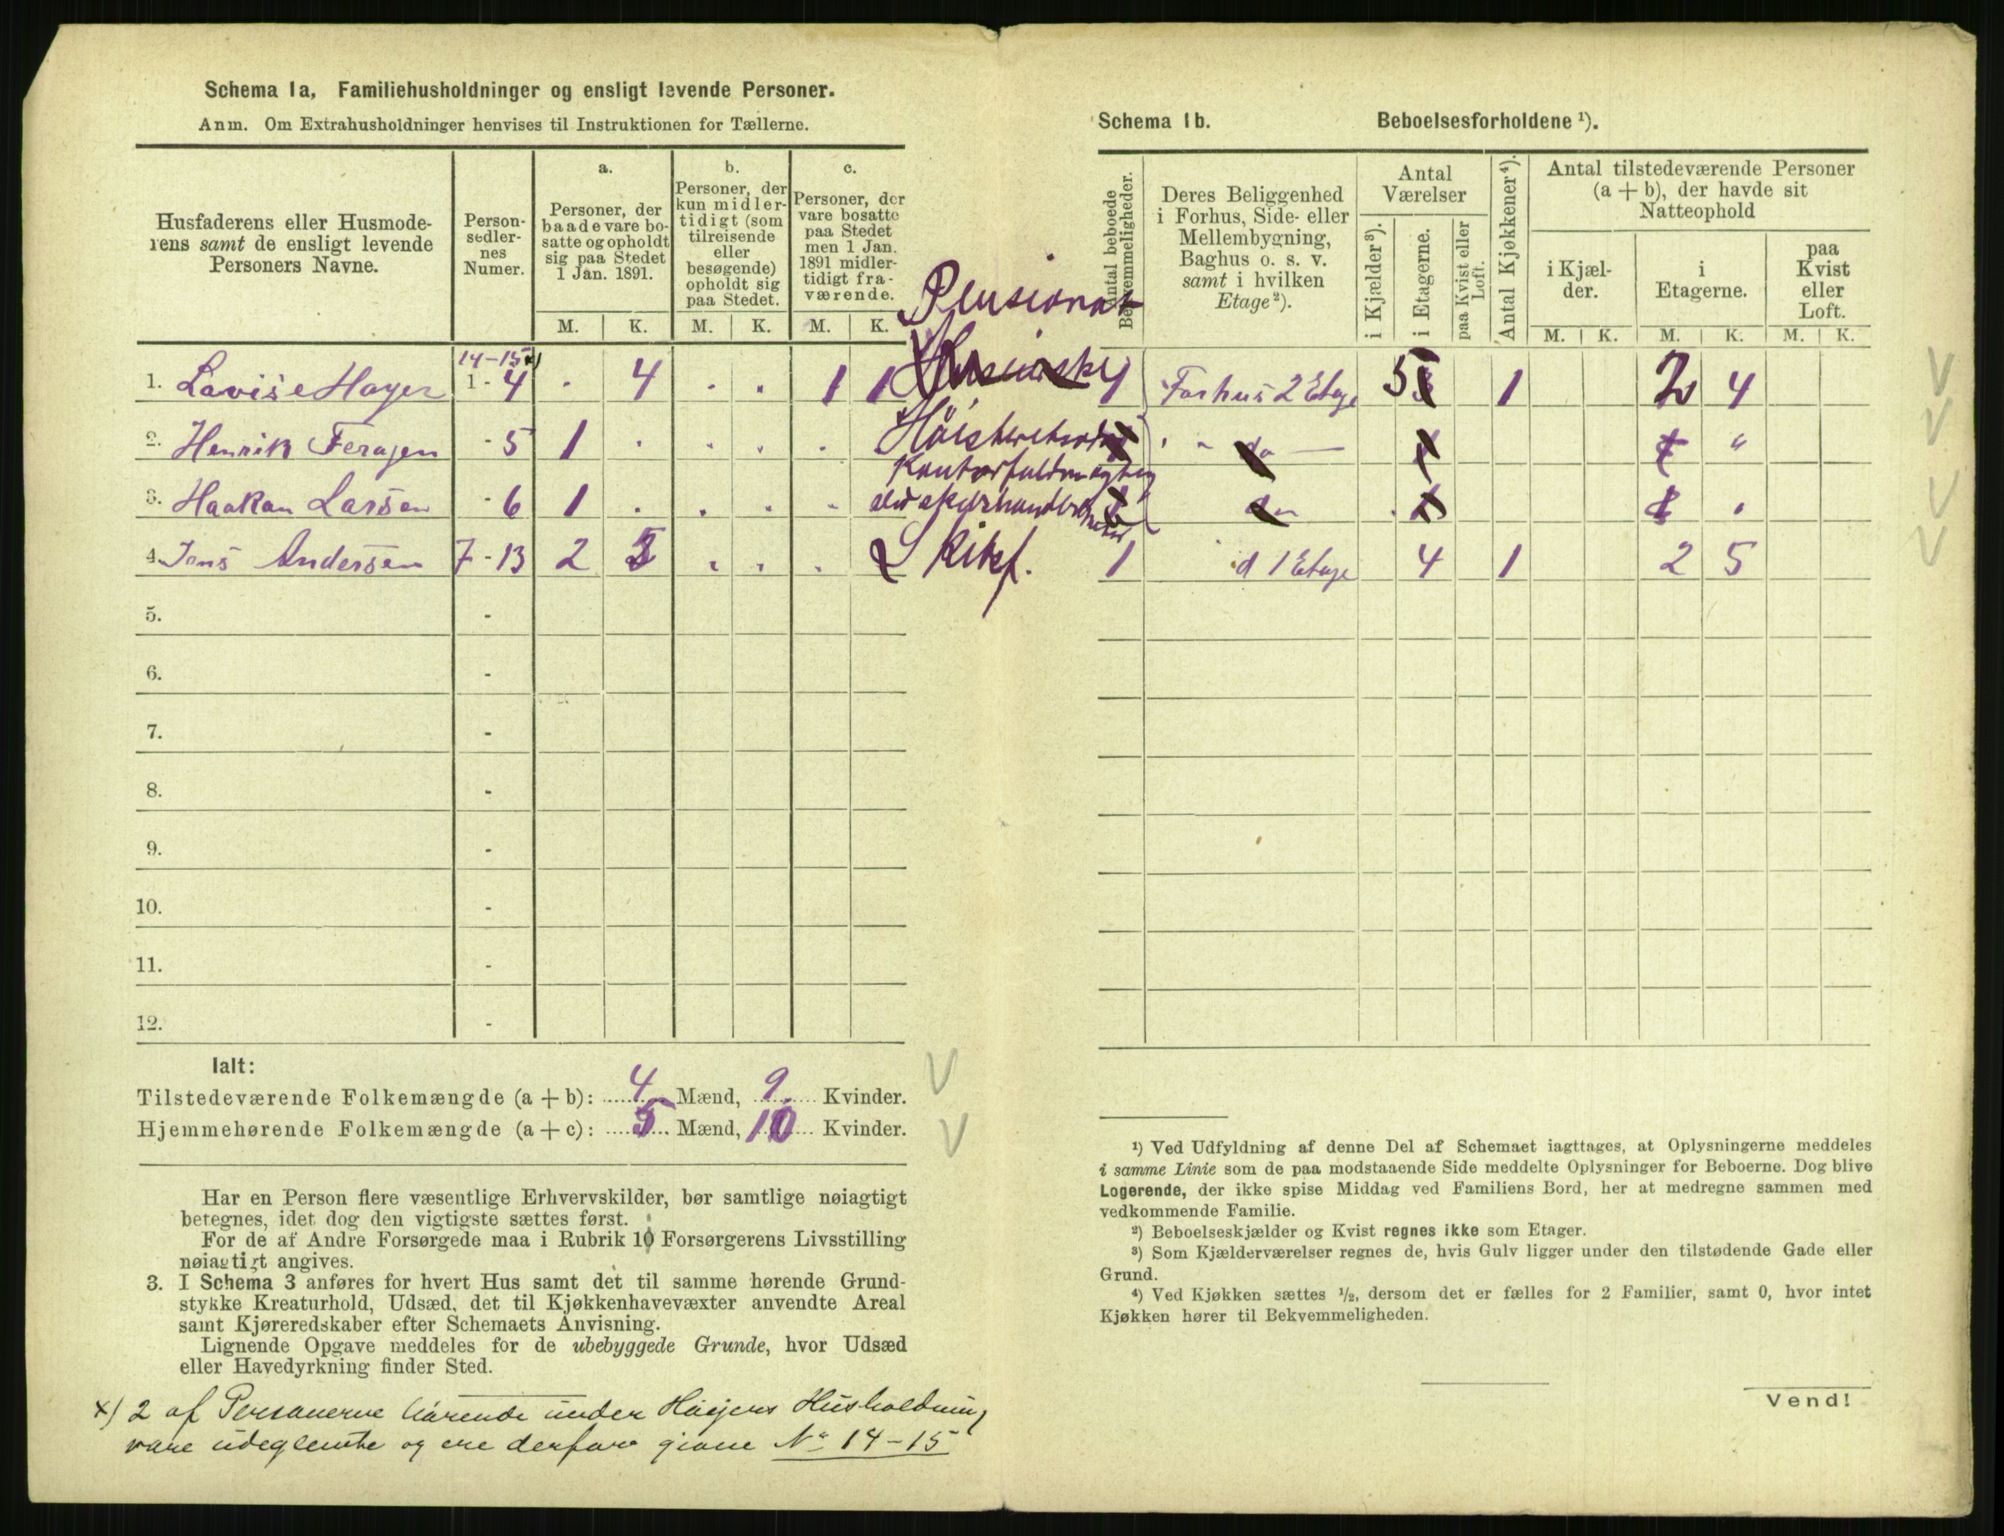 Schema 1a, Familiehusholdninger og ensligt levende Personer.
Anm. Om Extrahusholdninger henvises til Instruktionen for Tællerne.
Husfaderens eller Husmode-
rens samt de ensligt levende
Personers Navne.
Person-
sedler-
nes
Numer.
a.
Personer, der
baade vare bo-
satte og opholdt
sig paa Stedet
1 Jan. 1891.
b.
Personer, der
kun midler-
tidigt (som
tilreisende
eller
besøgende)
opholdt sig
paa Stedet.
c.
Personer, der
vare bosatte
paa Stedet
men 1 Jan.
1891 midler-
tidigt fra-
værende.
M. K. M. K. M. K.
14-15 x)
1. Lovise Høyer 1 - 4 . 4 . . 1 1
2. Henrik Feragen - 5 1 . . . .
3. Haakon Larsen - 6 1 . . . .
4. Jens Andersen 7 - 13 2 5 . . .
5. -
6. -
7. -
8. -
9. -
10. -
11. -
12. -
Pensionat
Kontorfuldmægtig
Ialt:
Tilstedeværende Folkemængde (a + b): 4 Mænd, 9 Kvinder.
Hjemmehørende Folkemængde (a + c): 5 Mænd, 10 Kvinder.
Har en Person flere væsentlige Erhvervskilder, bør samtlige nøiagtigt
betegnes, idet dog den vigtigste sættes først.
For de af Andre Forsørgede maa i Rubrik 10 Forsørgerens Livsstilling
nøiagtigt angives.
3. I Schema 3 anføres for hvert Hus samt det til samme hørende Grund-
stykke Kreaturhold, Udsæd, det til Kjøkkenhavevæxter anvendte Areal
samt Kjøreredskaber efter Schemaets Anvisning.
Lignende Opgave meddeles for de ubebyggede Grunde, hvor Udsæd
eller Havedyrkning finder Sted.
x) 2 af Personerne hørende under Høiers Husholdning
vare udeglemte og ere derfor givne No 14-15
Schema 1b. Beboelsesforholdene ¹).
Antal beboede
Bekvemmeligheder.
Deres Beliggenhed
i Forhus, Side- eller
Mellembygning,
Baghus o. s. v.
samt i hvilken
Etage ²).
Antal
Værelser
i Kjælder ³).
i Etagerne.
paa Kvist eller
Loft.
Antal Kjøkkener ⁴).
Antal tilstedeværende Personer
(a + b), der havde sit
Natteophold
i Kjæl-
der.
i
Etagerne.
paa
Kvist
eller
Loft.
M. K. M. K. M. K.
1 Forhus 2 Etage 5 1 2 4
" do "
do
1 d 1 Etage 4 1 2 5
¹) Ved Udfyldning af denne Del af Schemaet iagttages, at Oplysningerne meddeles
i samme Linie som de paa modstaaende Side meddelte Oplysninger for Beboerne. Dog blive
Logerende, der ikke spise Middag ved Familiens Bord, her at medregne sammen med
vedkommende Familie.
²) Beboelseskjælder og Kvist regnes ikke som Etager.
³) Som Kjælderværelser regnes de, hvis Gulv ligger under den tilstødende Gade eller
Grund.
⁴) Ved Kjøkken sættes ¹/₂, dersom det er fælles for 2 Familier, samt 0, hvor intet
Kjøkken hører til Bekvemmeligheden.
Vend!